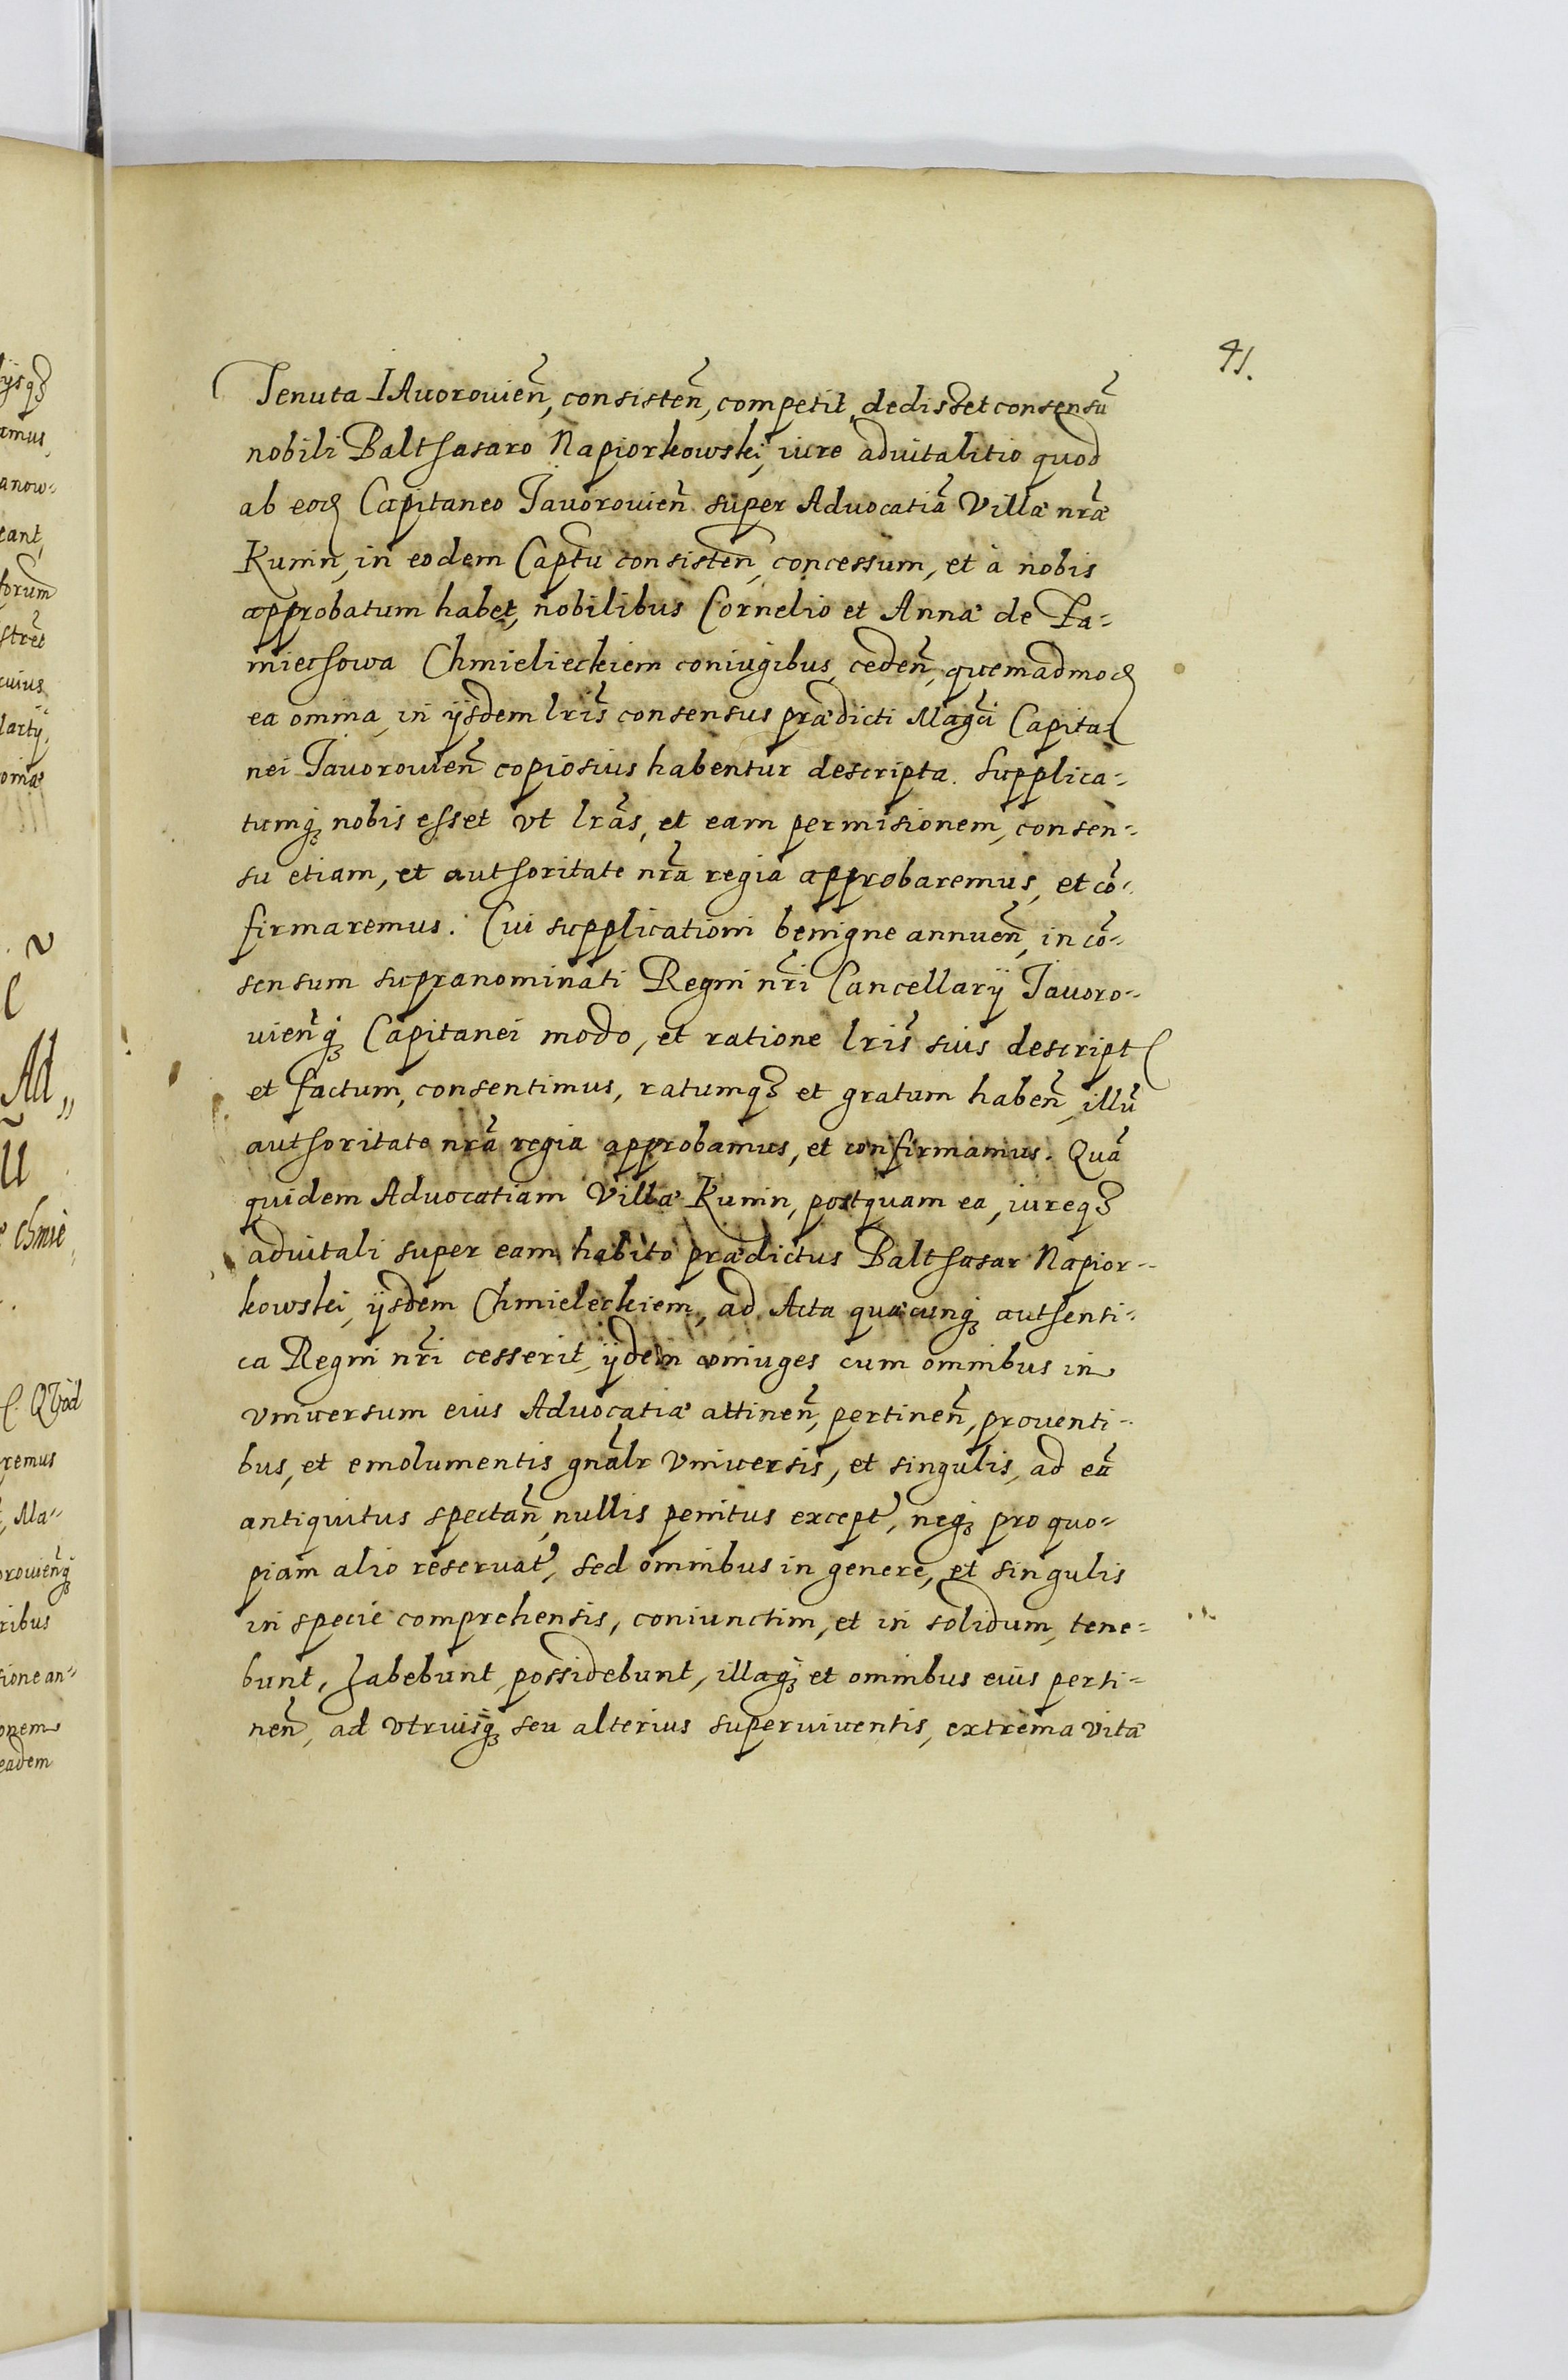 41.
Tenuta IAvorouien̄, consisten̄, competit, dedisset consensū
nobili Balthasaro Napiorkowski, iure aduitalitio quod
ab eod Capitaneo Jauorouien̄ super Aduocatiā Villæ nr̄æ
Kunin, in eodem Captu consisten̄, concessum, et à nobis
approbatum habet, nobilibus Cornelio et Annæ de Za-
miechowa Chmielieckiem coniugibus, ceden̄, quemadmod
ea omnia, in ijsdem lr̄is consensus prædicti Maḡci Capita-
nei Jauorouien̄ copiosius habentur descripta. Supplica-
tumq; nobis esset vt lr̄as, et eam permisionem, consen-
su etiam, et authoritate nr̄a regia approbaremus, et cō-
firmaremus. Cui supplicationi benigne annuen̄, in cō-
sensum supranominati Regni nr̄i Cancellarij Jauoro-
uien̄q; Capitanei modo, et ratione lr̄is suis descript
et factum, consentimus, ratumq; et gratum haben̄, illū
authoritate nr̄a regia approbamus, et confirmamus. Quā
quidem Aduocatiam Villæ Kunin, postquam ea, iureq;
aduitali super eam habito prædictus Balthasar Napior-
kowski, ijsdem Chmieleckiem, ad Acta quæcunq; authenti-
ca Regni nr̄i cesserit, ijdem coniuges cum omnibus in
vniuersum eius Aduocatiæ attinen̄, pertinen̄, prouenti-
bus, et emolumentis gn̄alr vniuersis, et singulis, ad eā
antiquitus spectan̄, nullis penitus except, neq; pro quo-
piam alio reseruat, sed omnibus in genere, et singulis
in specie comprehensis, coniunctim, et in solidum, tene-
bunt, habebunt, possidebunt, illaq; et omnibus eius perti-
nen̄, ad vtriusq; seu alterius superuiuentis, extrema vitæ